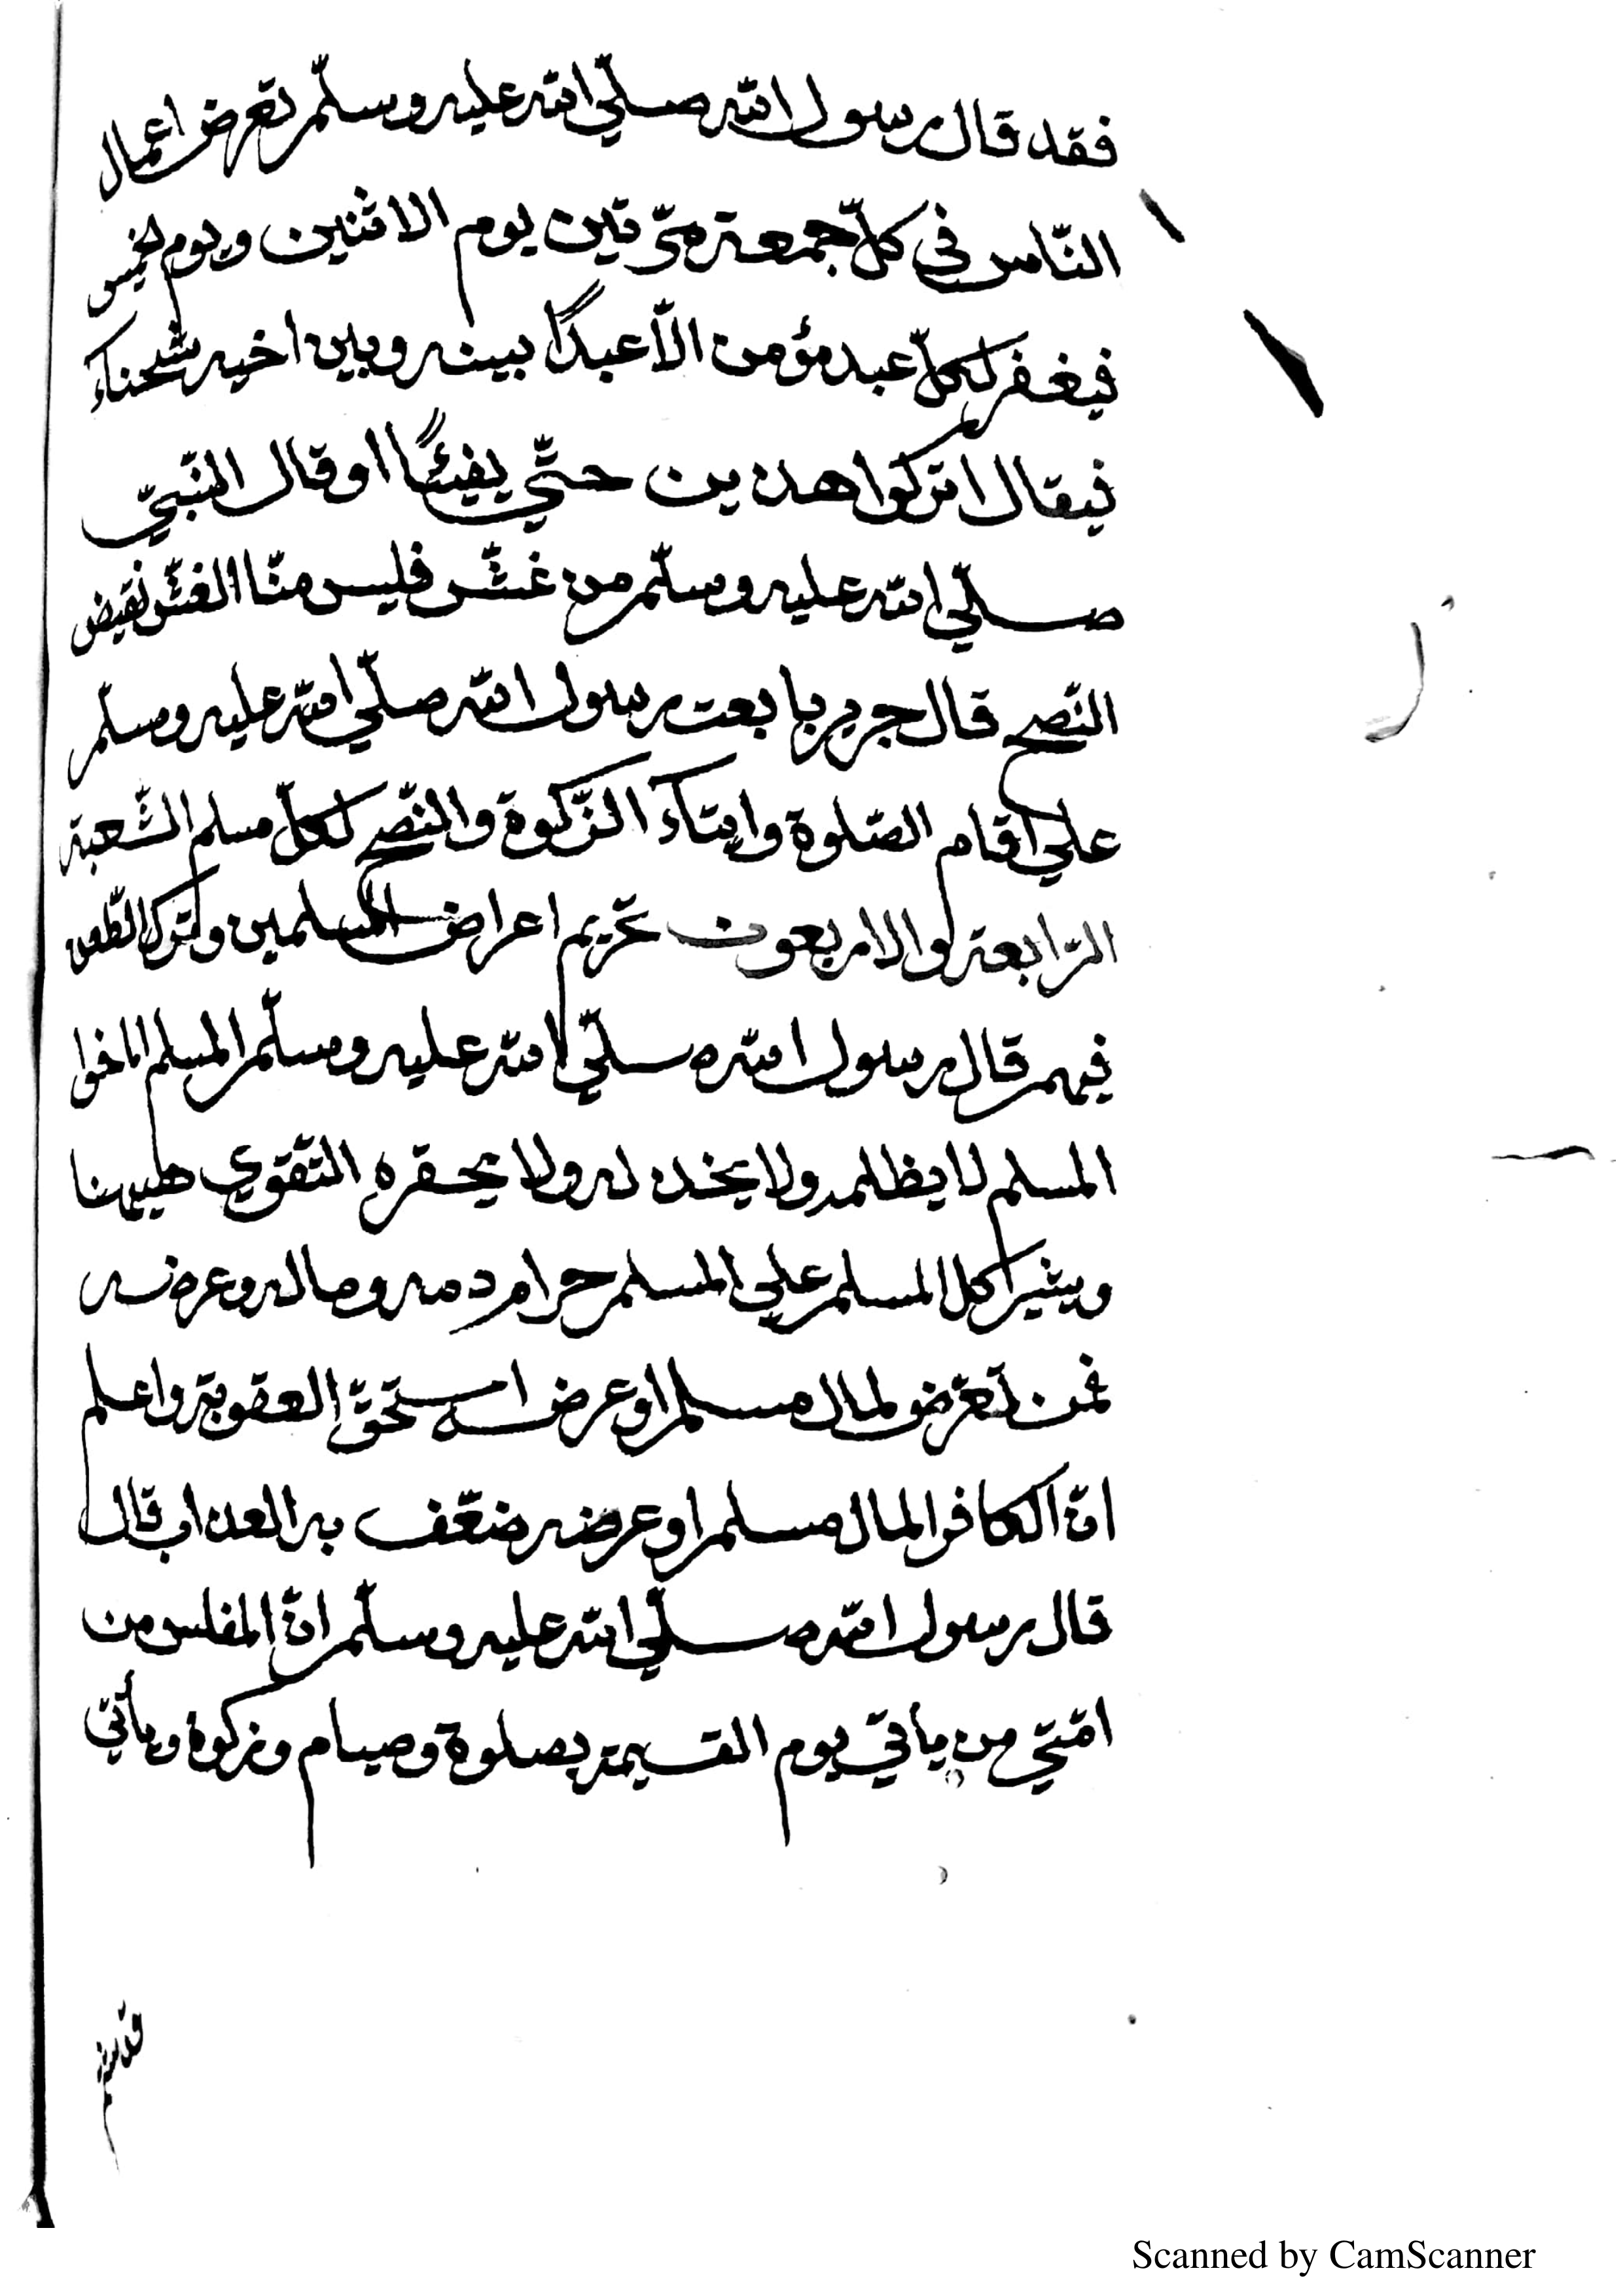 فقد قال رسول الله صلّي الله عليه وسلّم تعرض اعمال
النّاس في كلّ جمعة مرّتين يوم الاثنين ويوم الخميس
فيغفر لكلّ عبد مؤمن الّا عبدًا بينه وبين اخيه شحناء
فيقال اتركوا هذين حتّي يفيئا او قال النّبيّ
صلّي الله عليه وسلّم من غشّ فليس منّا الغشّ نقيض
النّصح قال جرير بايعت رسول الله صلّي الله عليه وسلّم
علي اقام الصّلوة وايتاء الزّكوة والنّصح لكلّ مسلم الشّعبة
الرّابعة والاربعون تحريم اعراض المسلمين وترك الطّعن
فيهم قال رسول الله صلّي الله عليه وسلّم المسلم اخوا
المسلم لا يظلمه ولا يخذله ولا يحقره التّقوي هيهنا
ويشير اكل المسلم علي المسلم حرام دمه وماله وعرضه
فمن تعرّض لمال مسلم او عرضه استحقّ العقوبة واعلم
انّ الكافر المال مسلم او عرضه ضعّف به العذاب قال
قال رسول الله صلّي الله عليه وسلّم انّ المفلس من
امّتي من يأتي يوم القيمة بصلوة وصيام وزكوة ويأتي
Scanned by CamScanner